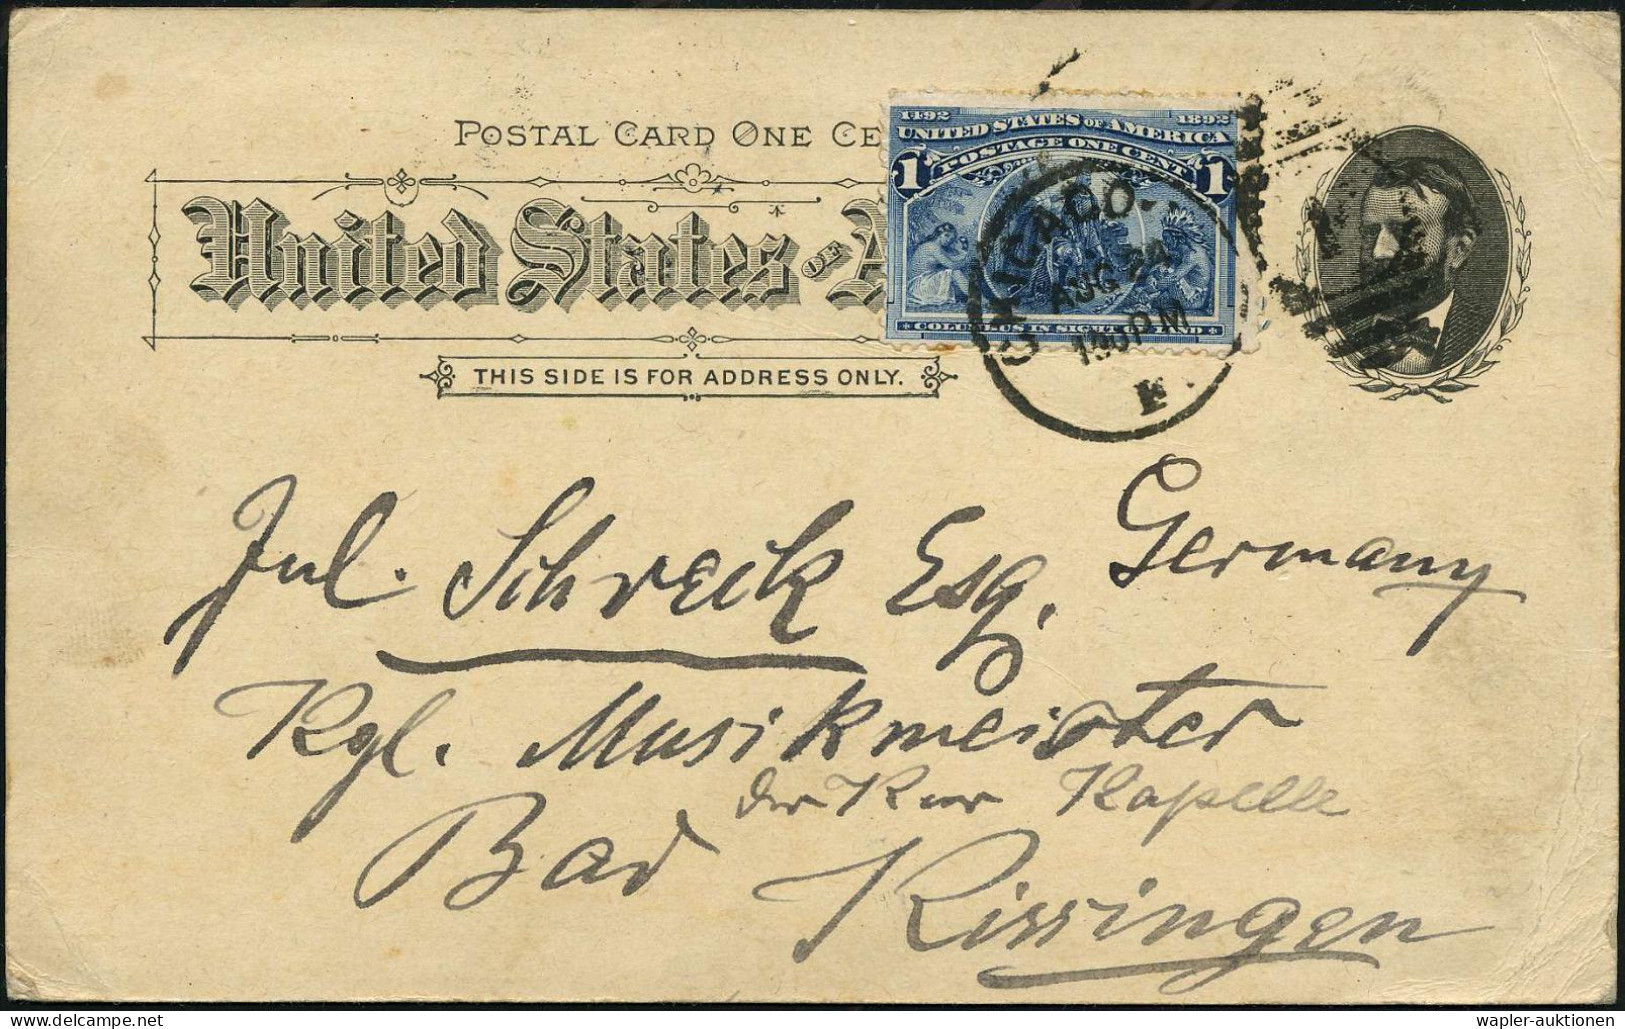 POSTAL CARD ONE CE
United States OF A
THIS SIDE IS FOR ADDRESS ONLY.
1492 1892
UNITED STATES OF AMERICA
POSTAGE ONE CENT
1 1
COLUMBUS IN SIGHT OF LAND
CHICAGO
AUG 24
1 PM
F
Germany
Jul. Schreck Esq.
Kgl. Musikmeister
der Kur Kapelle
Bad Kissingen
www.delcampe.net
wapler-auktionen